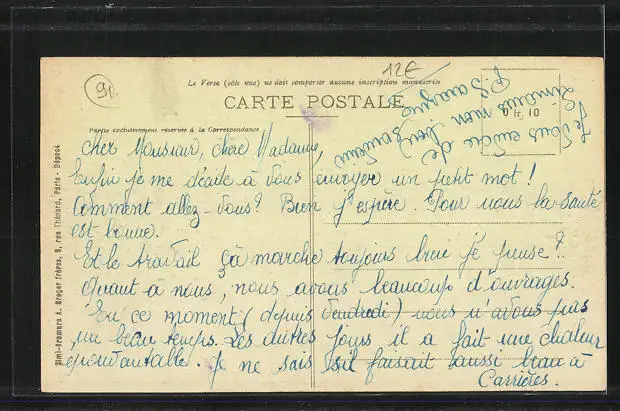 90.
12€
Le Verso (côté vue) ne doit comporter aucune inscription manuscrite
CARTE POSTALE
Partie exclusivement réservée à la Correspondance
0 fr. 10
Simi-Bromure A. Breger frères, 9, rue Thénard, Paris - Déposé
Cher Monsieur, chère Madame,
Enfin je me décide à vous envoyer un petit mot!
Comment allez-vous? Bien j'espère. Pour nous la santé
est bonne.
Et le travail ça marche toujours bien je pense?
Quant a nous, nous avons beaucoup d'ouvrages.
En ce moment (depuis Vendredi) nous n'avons pas
un beau temps. Les autres jours il a fait une chaleur
épouvantable. Je ne sais s'il faisait aussi beau à
Carrières.
Je vous envoie de
mon bon souvenir